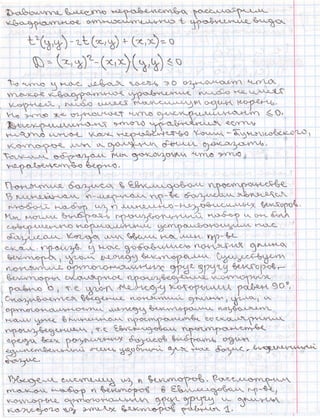 Давайте вместо неравенства рассмотрим
квадратное относительно t уравнение вида
t²(y,y)-2t(x,y)+(x,x)=0
D=(x,y)²-(x,x)(y,y)≤0
То что у нас левая часть ≥0 означает что
такое квадратное уравнение либо не имеет
корней, либо имеет максимум один корень.
Но это же означает что дискриминант ≤0.
Дискриминант этого уравнения есть
ничто иное как неравенство Коши-Буняковского,
которое мы и должны были доказать.
Таким образом мы доказали что это
неравенство верно.
Понятие базиса в Евклидовом пространстве
В линейном n-мерном пр-ве базисом является
любой набор из n линейно-независимых векторов.
Мы могли выбрать произвольный набор и он был
совершенно нормальным устраивающим нас
базисом. Когда мы ввели на пр-ве
скал. произв. у нас добавились понятия длина
вектора, угол между векторами. Существует
понятие ортогональных друг другу векторов -
векторы скалярное произведение которых
равно 0, т.е. угол между которыми равен 90°.
Оказывается введение понятий длины, угла, и
ортогональности между векторами позволяет
нам уже в линейном пространстве со скалярным
произведением, т.е. Евклидовом пространстве
среди всех различных базисов выбрать один
единственный очень удобный для нас базис,
базис.
Введем систему из n векторов. Рассмотрим
такой набор n векторов в Евклидовом пр-ве,
которые ортогональны друг другу и длины
каждого из этих векторов равны 1.